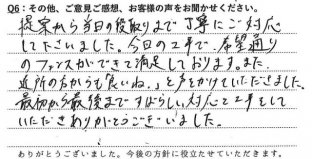 Q6：その他、ご意見ご感想、お客様の声をお聞かせください。
提案から当日の段取りまで丁寧にご対応
して下さいました。今回の工事で、希望通り
のフェンスができて満足しております。また、
近所の方からも"良いね。"と声をかけていただきました。
最初から最後まですばらしい対応と工事をして
いただきありがとうございました。
ありがとうございました。今後の方針に役立たせていただきます。